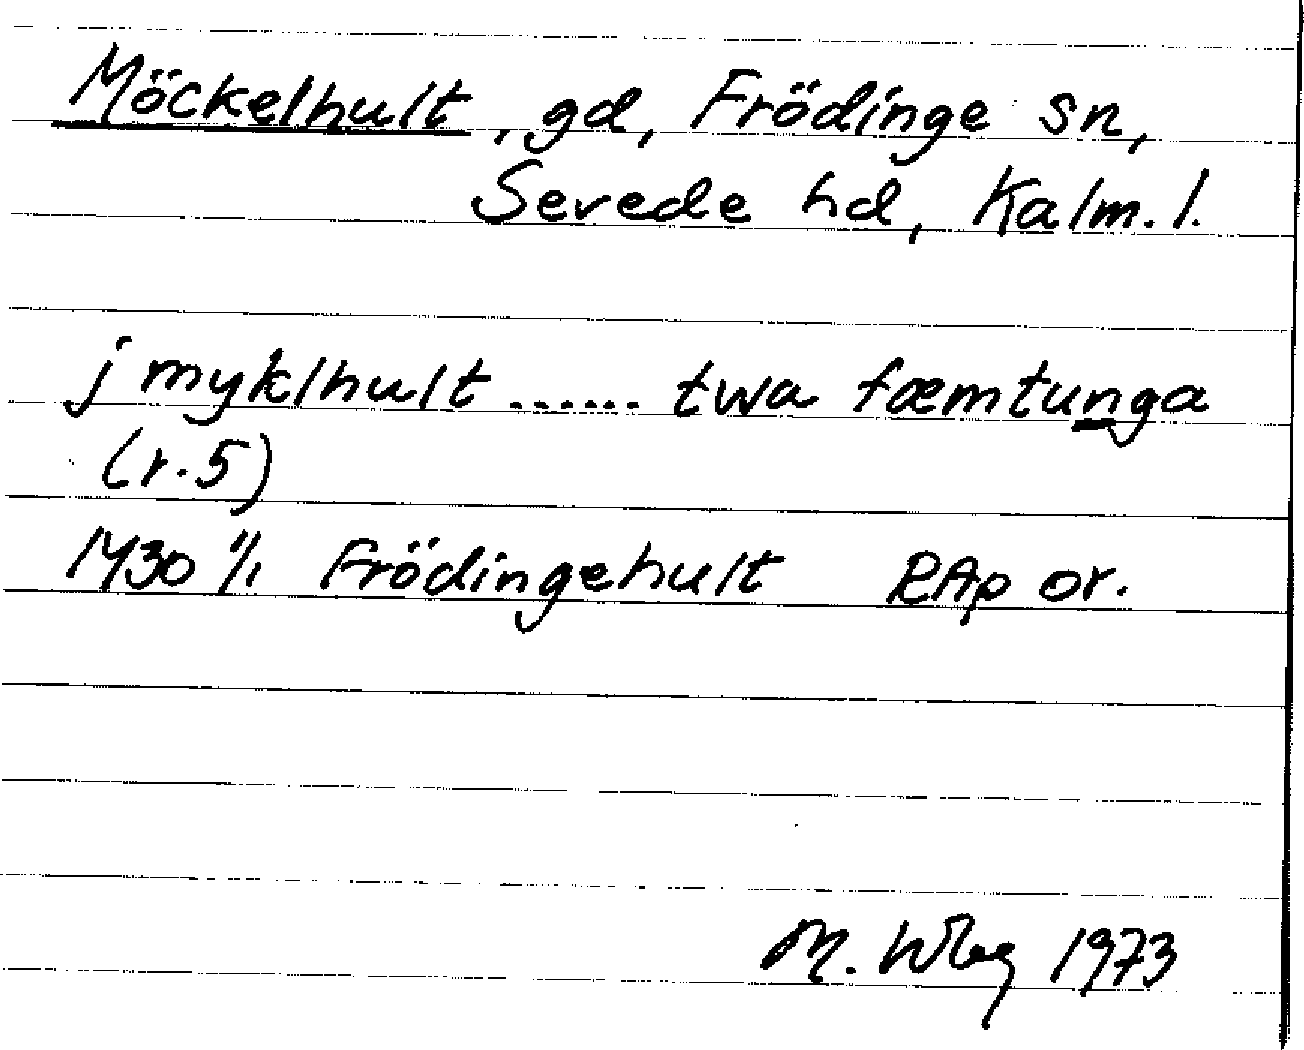 Möckelhult, gd, Frödinge sn,
Sevede hd, Kalm. l.
j myklhult ...... twa fæmtunga
(r. 5)
1430 11/1 Frödingehult RAp or.
M. Wbg 1973